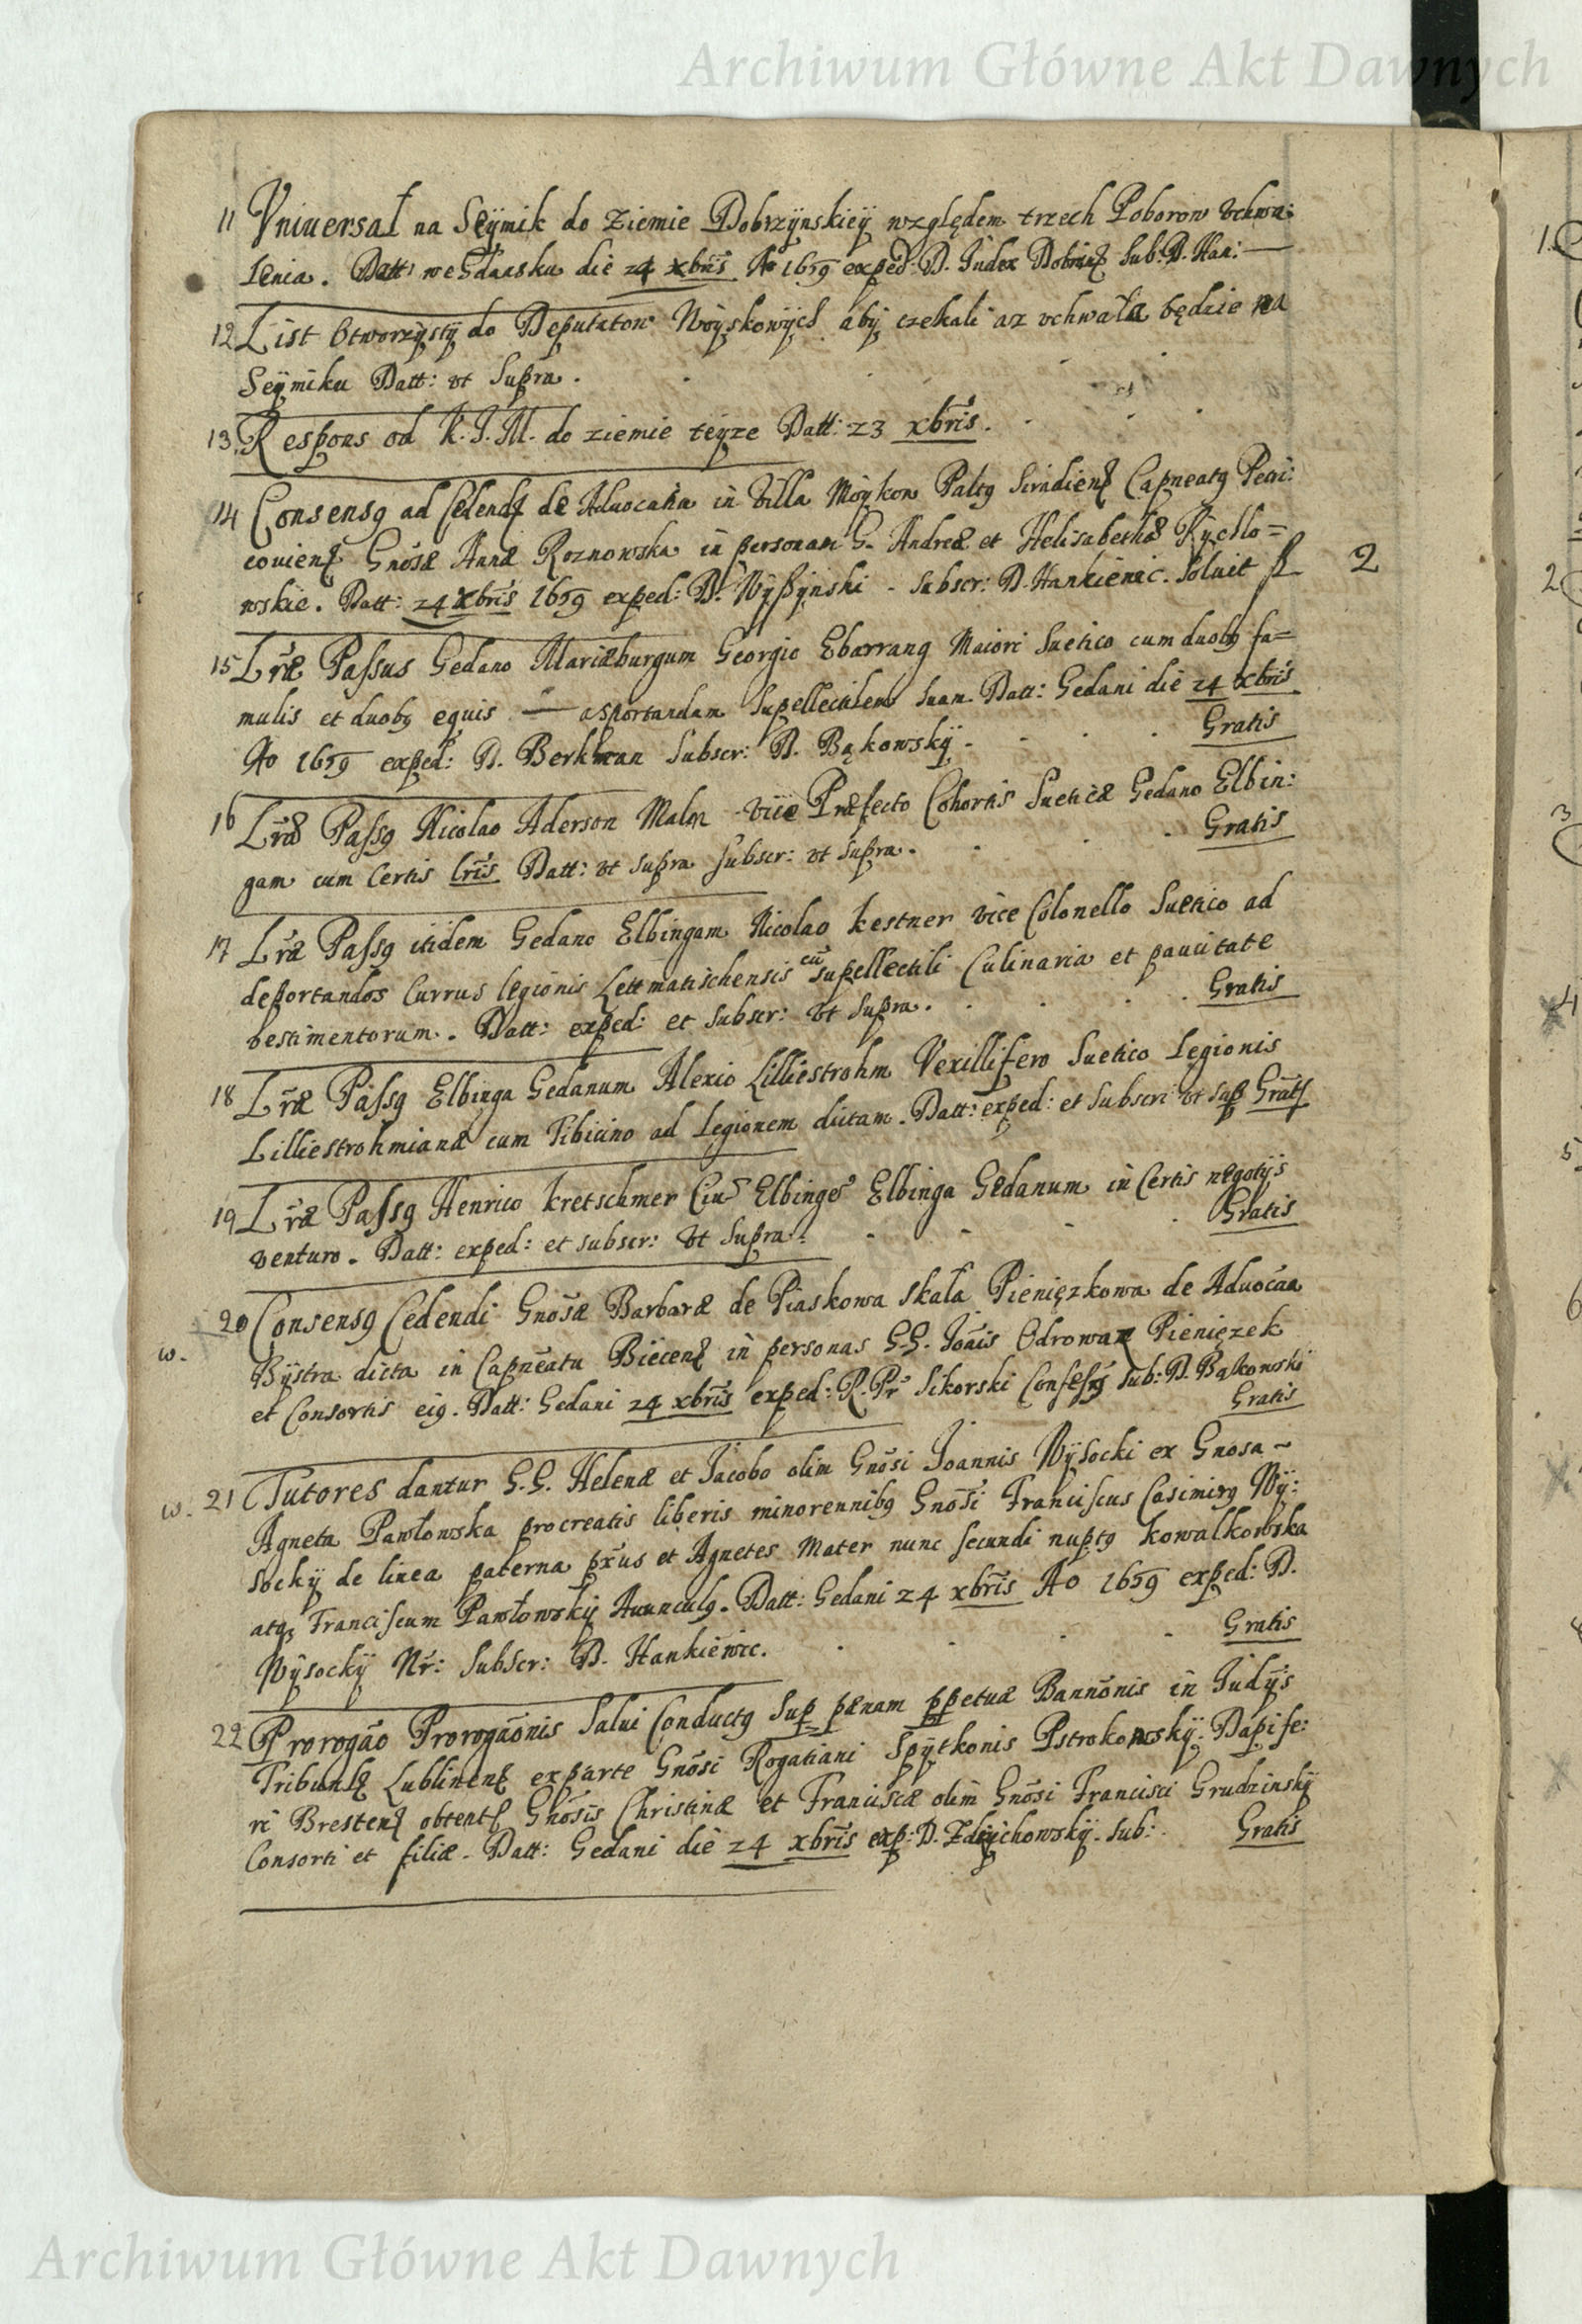 Archiwum Główne Akt Dawnych
11 Vniuersał na Seÿmik do Ziemie Dobrzÿnskieÿ względem trzech Poborow Vchwa:
lenia. Datt: we Gdansku die 24 xbris Ao 1659 exped: D. Judex Dobrinens Sub: D. Han:
12 List Otworzÿstÿ do Deputatow Woÿskowÿch abÿ czekali az vchwała będzie na
Seÿmiku Datt: vt Supra.
13 Respons od K. J. M. do ziemie teÿze Datt: 23 xbris.
14 Consensq ad Cedend de Aduocatia in Villa Moÿkow Paltq Siradiens Capneatq Petri:
couiens Gnosæ Annæ Roznowska in personam G. Andreæ et Helisabethæ Rÿchlo=
wskie. Datt: 24 Xbris 1659 exped: D. Wÿßÿnski - Subscr: D. Hankiewic. Soluit fl 2
15 Lræ Passus Gedano Mariæburgum Georgio Ebarrang Maiori Suetico cum duobq fa=
mulis et duobq equis asportandam Supellectilem Suam. Datt: Gedani die 24 xbris
Ao 1659 exped: D. Berkman Subscr: D. Bąkowskÿ. Gratis
16 Lræ Passq Nicolao Aderson Malm vice Præfecto Cohortis Sueticæ Gedano Elbin:
gam cum Certis lris Datt: vt Supra Subscr: vt Supra. Gratis
17 Lræ Passq itidem Gedano Elbingam Nicolao Kestner vice Colonello Suetico ad
deportandos Currus legionis Lettmatischensis cu supellectili Culinaria et paucitate
vestimentorum. Datt: exped: et Subscr: vt Supra. Gratis
18 Lræ Passq Elbinga Gedanum Alexio Lilliestrohm Vexillifero Suetico Legionis
Lilliestrohmianæ cum Tibicino ad Legionem dictam. Datt: exped: et Subscr: vt Sup Gratis
19 Lræ Passq Henrico Kretschmer Ciui Elbinges Elbinga Gedanum in Certis negotÿs
venturo. Datt: exped: et subscr: vt Supra. Gratis
20 Consensq Cedendi Gnosæ Barbaræ de Piaskowa skała Pienięzkowa de Aduocaa
w. Bÿstra dicta in Capneatu Biecens in personas G.G. Joais Odrowaz Pienięzek
et Consortis eiq. Datt: Gedani 24 xbris exped: R. Pr Sikorski Confessq Sub: D. Bąkowski
Gratis
w. 21 Tutores dantur G.G. Helenæ et Jacobo olim Gnosi Joannis Wÿsocki ex Gnosa ~
Agneta Pawłowska procreatis liberis minorennibq Gnosi Franciscus Casimirq Wÿ:
sockÿ de linea paterna prus et Agnetes Mater nunc secundi nuptq Kowalkowska
atq Franciscum Pawłowskÿ Auunculq. Datt: Gedani 24 xbris Ao 1659 exped: D.
Wÿsockÿ Nr: Subscr: D. Hankiewic. Gratis
22 Prorogao Prorogaonis Salui Conductq Sup pænam ppetuæ Bannonis in Judÿs
Tribunls Lublinens exparte Gnosi Rogatiani Spÿtkonis Pstrokonskÿ Dapife:
ri Brestens obtents Gnosis Christinæ et Franciscæ olim Gnosi Francisci Grudzinskÿ
Consorti et filiæ. Datt: Gedani die 24 xbris exp: D. Zdzÿchowskÿ. Sub: Gratis
Archiwum Główne Akt Dawnych